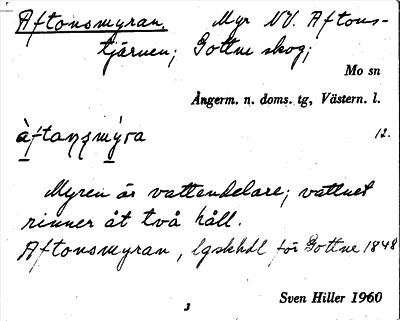 Aftonsmyran, Myr NV. Aftons-
tjärnen; Gottne skog;
Mo sn
Ångerm. n. doms. tg, Västern. l.
àftansmy̆ra 12.
Myren är vattendelare; vattnet
rinner åt två håll.
Aftonsmyran, lgskhdl för Gottne 1848
3
Sven Hiller 1960